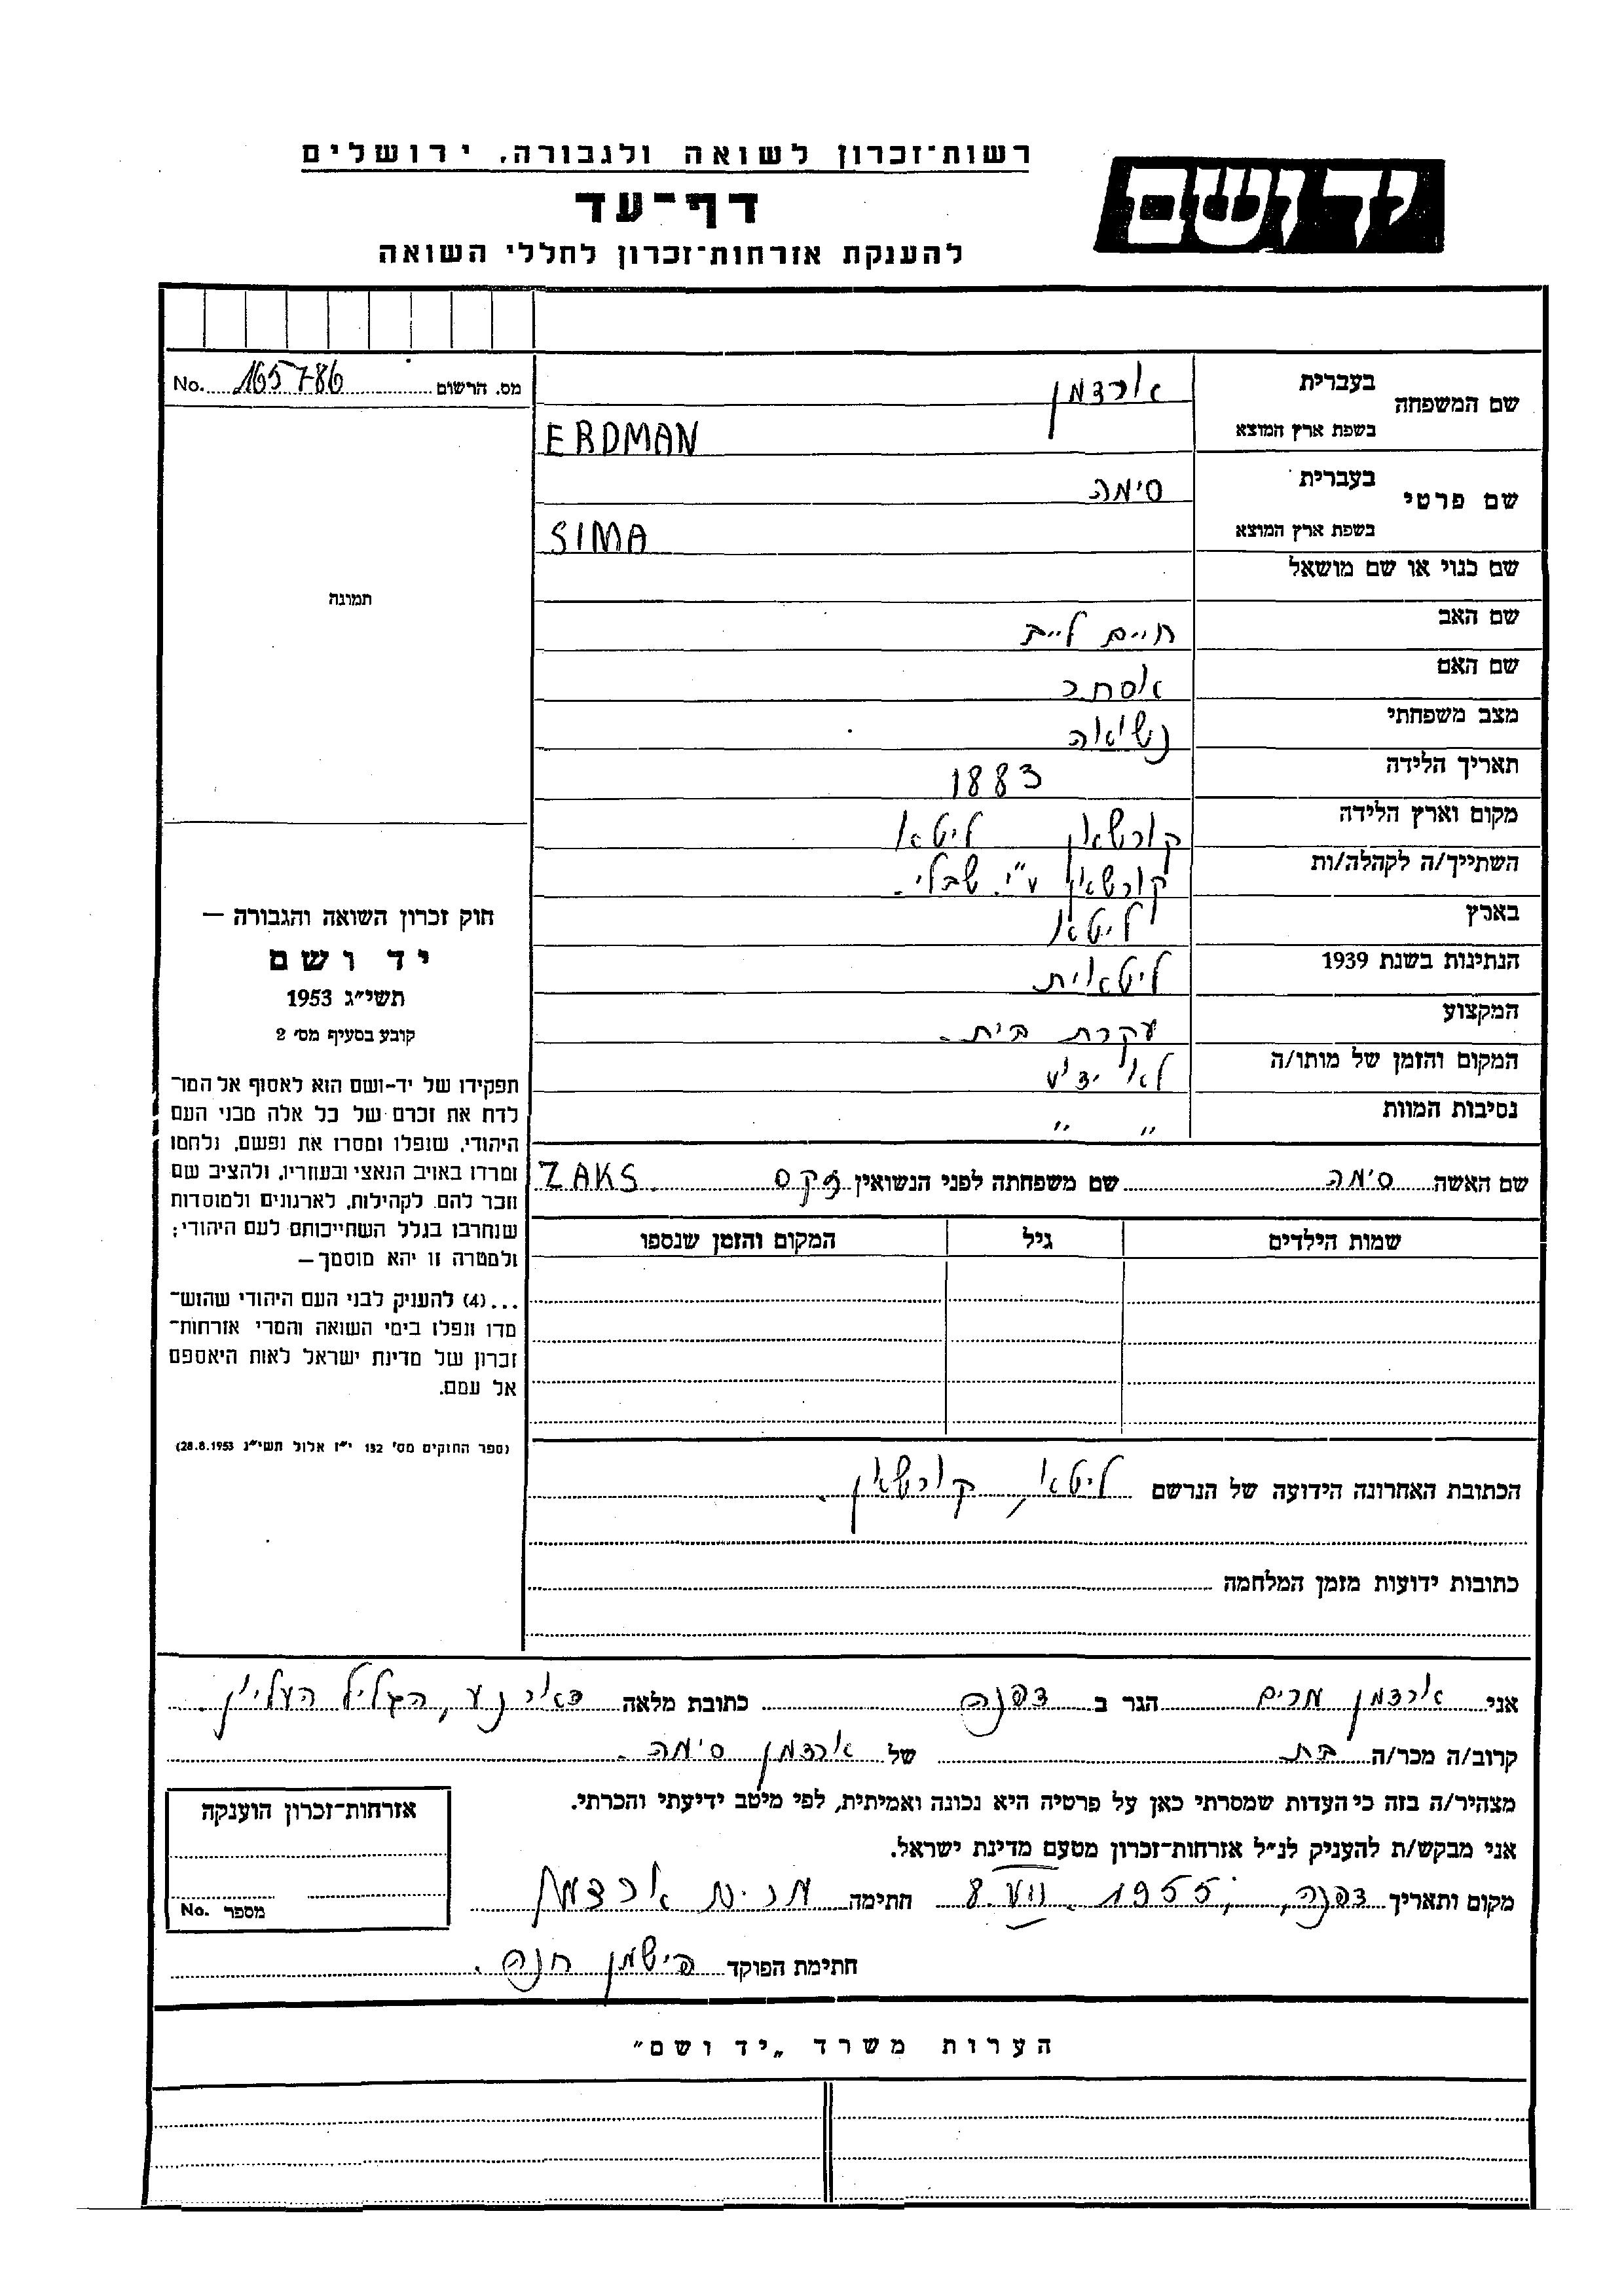 רשות־זכרון לשואה ולגבורה, ירושלים
יד ושם
דף־עד
להענקת אזרחות־זכרון לחללי השואה
מס. הרשום 165786 No.
שם המשפחה
בעברית
אורדמן
בשפת ארץ המוצא
ERDMAN
שם פרטי
בעברית
סימה
בשפת ארץ המוצא
SIMA
שם כנוי או שם מושאל
שם האב חיים
שם האם אסתר
מצב משפחתי נשואה
תאריך הלידה 1883
מקום וארץ הלידה קורשאן ליטא
השתייך/ה לקהלה/ות קורשאן ע"י שבלי.
בארץ ליטא
הנתינות בשנת 1939 ליטאית
המקצוע עקרת בית.
המקום והזמן של מותו/ה לא ידוע
נסיבות המוות " "
שם האשה סימה שם משפחתה לפני הנשואין זקס ZAKS
שמות הילדים גיל המקום והזמן שנספו
הכתובת האחרונה הידועה של הנרשם ליטא, קורשאן.
כתובות ידועות מזמן המלחמה
תמונה
חוק זכרון השואה והגבורה —
יד ושם
תשי״ג 1953
קובע בסעיף מס׳ 2
תפקידו של יד-ושם הוא לאסוף אל המו־
לדת את זכרם של כל אלה מבני העם
היהודי, שנפלו ומסרו את נפשם, נלחמו
ומרדו באויב הנאצי ובעוזריו, ולהציב שם
וזכר להם, לקהילות, לארגונים ולמוסדות
שנחרבו בגלל השתייכותם לעם היהודי;
ולמטרה זו יהא מוסמך—
...(4) להעניק לבני העם היהודי שהוש־
מדו ונפלו בימי השואה והמרי אזרחות־
זכרון של מדינת ישראל לאות היאספם
אל עמם.
(ספר החוקים מס׳ 132 י״ז אלול תשי״ג 28.8.1953)
אני אורדמן מרים הגר ב דפנה כתובת מלאה דאר נע, הגליל העליון.
קרוב/ה מכר/ה בת של אורדמן סימה.
מצהיר/ה בזה כי העדות שמסרתי כאן על פרטיה היא נכונה ואמיתית, לפי מיטב ידיעתי והכרתי.
אני מבקש/ת להעניק לנ״ל אזרחות־זכרון מטעם מדינת ישראל.
מקום ותאריך דפנה, 1955 8. חתימה מרים אורדמן
חתימת הפוקד חנה.
אזרחות־זכרון הוענקה
מספר No.
הערות משרד „יד ושם״